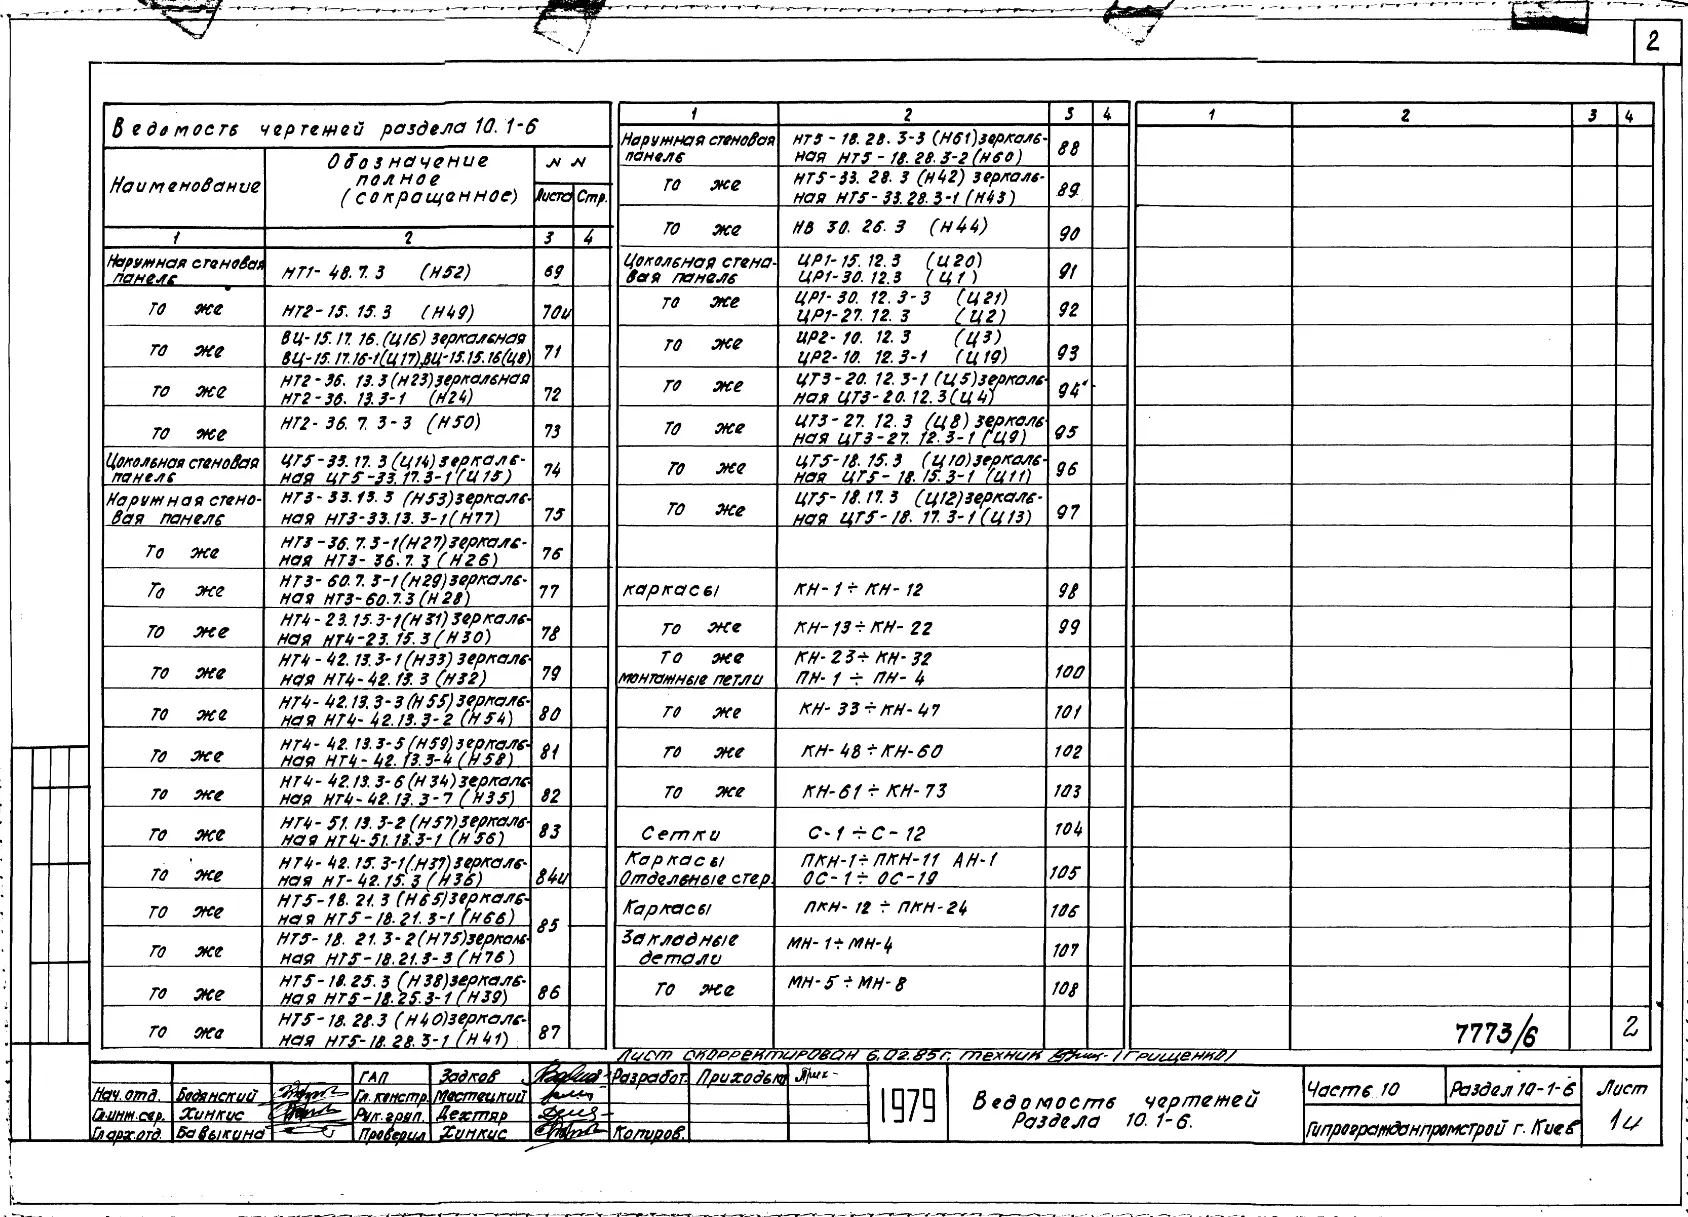 2
Ведомость чертежей раздела 10.1-6
Наименование
Обозначение полное (сокращенное)
N N
Листа Стр.
1 2 3 4
Наружная стеновая панель НТ1-48.7.3 (Н52) 69
То же НТ2-15.15.3 (Н49) 70и
То же ВЦ-15.17.16.(Ц16) зеркальная
ВЦ-15.17.16-1(Ц17),ВЦ-15.15.16(Ц8) 71
То же НТ2-36.13.3(Н23)зеркальная
НТ2-36.13.3-1 (Н24) 72
То же НТ2-36.7.3-3 (Н50) 73
Цокольная стеновая панель ЦТ5-33.17.3(Ц14)зеркаль-
ная ЦТ5-33.17.3-1(Ц15) 74
Наружная стено-
вая панель НТ3-33.13.3 (Н53)зеркаль-
ная НТ3-33.13.3-1(Н77) 75
То же НТ3-36.7.3-1(Н27)зеркаль-
ная НТ3-36.7.3(Н26) 76
То же НТ3-60.7.3-1(Н29)зеркаль-
ная НТ3-60.7.3(Н28) 77
То же НТ4-23.15.3-1(Н31)зеркаль-
ная НТ4-23.15.3(Н30) 78
То же НТ4-42.13.3-1(Н33)зеркаль-
ная НТ4-42.13.3(Н32) 79
То же НТ4-42.13.3-3(Н55)зеркаль-
ная НТ4-42.13.3-2(Н54) 80
То же НТ4-42.13.3-5(Н59)зеркаль-
ная НТ4-42.13.3-4(Н58) 81
То же НТ4-42.13.3-6(Н34)зеркаль-
ная НТ4-42.13.3-7(Н35) 82
То же НТ4-51.13.3-2(Н57)зеркаль-
ная НТ4-51.13.3-1(Н56) 83
То же НТ4-42.15.3-1(Н37)зеркаль-
ная НТ-42.15.3(Н36) 84и
То же НТ5-18.21.3(Н65)зеркаль-
ная НТ5-18.21.3-1(Н66) 85
То же НТ5-18.21.3-2(Н75)зеркаль-
ная НТ5-18.21.3-3(Н76)
То же НТ5-18.25.3(Н38)зеркаль-
ная НТ5-18.25.3-1(Н39) 86
То же НТ5-18.28.3(Н40)зеркаль-
ная НТ5-18.28.3-1(Н41) 87
1 2 3 4
Наружная стеновая панель НТ5-18.28.3-3(Н61)зеркаль-
ная НТ5-18.28.3-2(Н60) 88
То же НТ5-33.28.3(Н42) зеркаль-
ная НТ5-33.28.3-1(Н43) 89
То же НВ 30.26.3 (Н44) 90
Цокольная стено-
вая панель ЦР1-15.12.3 (Ц20)
ЦР1-30.12.3 (Ц1) 91
То же ЦР1-30.12.3-3 (Ц21)
ЦР1-27.12.3 (Ц2) 92
То же ЦР2-10.12.3 (Ц3)
ЦР2-10.12.3-1 (Ц19) 93
То же ЦТ3-20.12.3-1(Ц5)зеркаль-
ная ЦТ3-20.12.3(Ц4) 94
То же ЦТ3-27.12.3 (Ц8)зеркаль-
ная ЦТ3-27.12.3-1(Ц9) 95
То же ЦТ5-18.15.3 (Ц10)зеркаль-
ная ЦТ5-18.15.3-1 (Ц11) 96
То же ЦТ5-18.17.3 (Ц12)зеркаль-
ная ЦТ5-18.17.3-1(Ц13) 97
каркасы КН-1÷КН-12 98
То же КН-13÷КН-22 99
То же КН-23÷КН-32
монтажные петли ПН-1÷ПН-4 100
То же КН-33÷КН-47 101
То же КН-48÷КН-60 102
То же КН-61÷КН-73 103
Сетки С-1÷С-12 104
Каркасы ПКН-1÷ПКН-11 АН-1
Отдельные стер. ОС-1÷ОС-19 105
Каркасы ПКН-12÷ПКН-24 106
Закладные
детали МН-1÷МН-4 107
То же МН-5÷МН-8 108
1 2 3 4
7773/6 2
Лист скорректирован 6.02.85г. техник /Грищенко/
ГАП Задков Разработ. Приходько
Нач.отд. Беданский Гл.констр. Мастецкий
Гл.инж.сер. Хинкис Рук.груп. Дехтяр
Гл.арх.отд. Бавыкина Проверил Хинкис Копиров.
1979
Ведомость чертежей
Раздела 10.1-6.
Часть 10 Раздел 10-1-6 Лист
Гипрогражданпромстрой г. Киев 1и